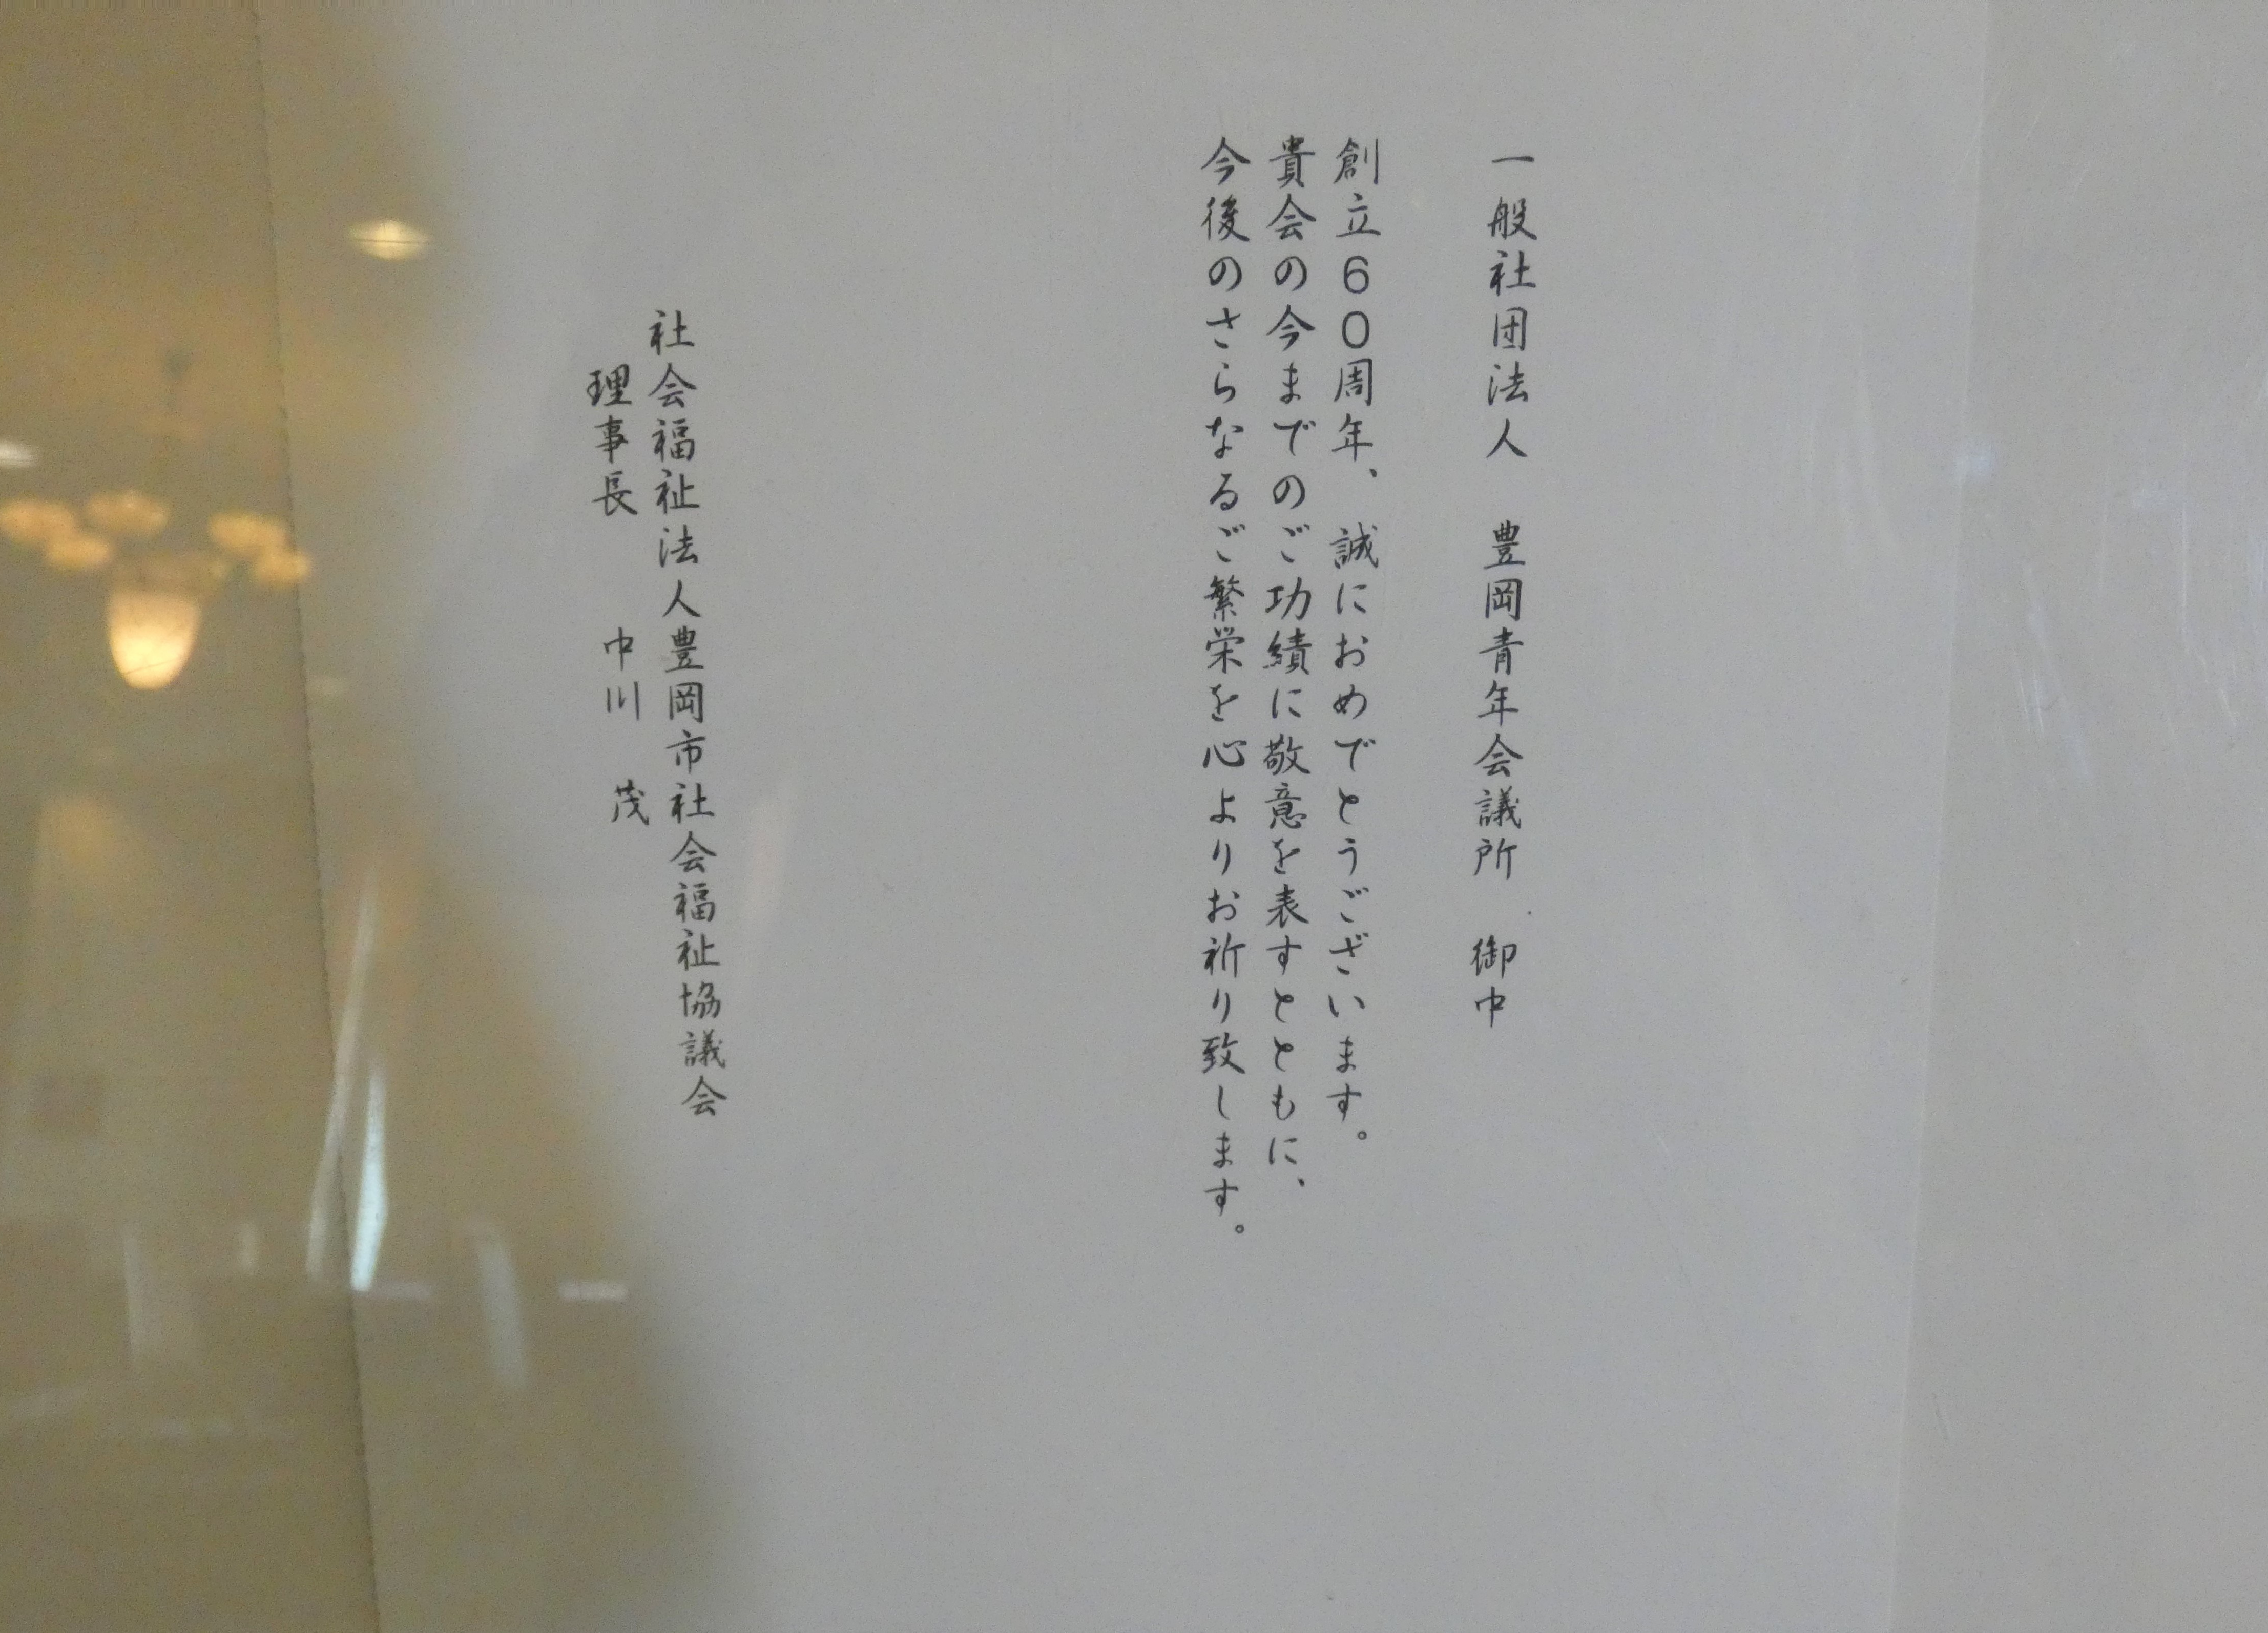 一般社団法人　豊岡青年会議所　御中
創立60周年、誠におめでとうございます。
貴会の今までのご功績に敬意を表すとともに、
今後のさらなるご繁栄を心よりお祈り致します。
社会福祉法人豊岡市社会福祉協議会
理事長　中川　茂